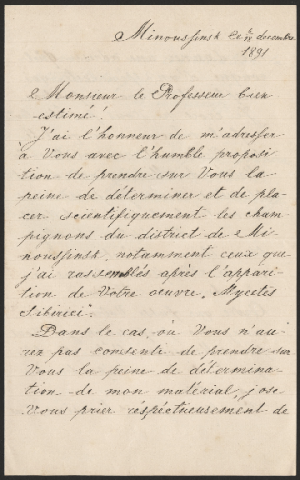 Minoussinsk decembre
1891
Monsieur le Professeur bien
estimé!
J'ai l'honneur de m'adresser
à Vous avec l'humble proposi
tion de prendre sur Vous la
peine de déterminer et de pla
cer scientifiquement les cham
pignons du district de Mi
noussinsk, notamment ceux que
j'ai rassemblés après l'appari
tion de Votre oeuvre, Mycetes
Sibirici.
Dans le cas, où Vous n'au
rez pas consente de prendre sur
Vous la peine de détermina
tion de mon matérial, j'ose
Vous prier réspéctueusement de